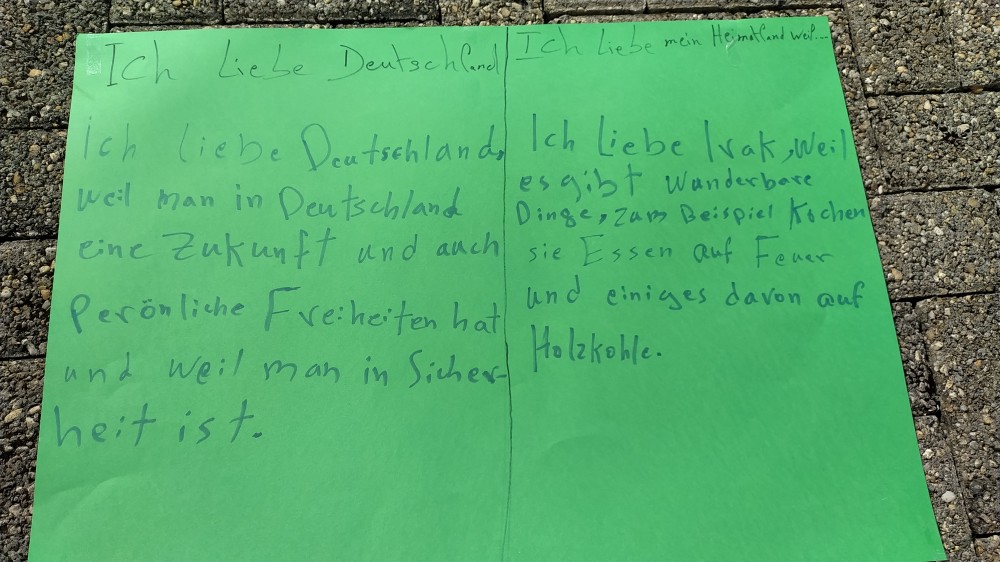 Ich Liebe Deutschland
Ich liebe Deutschland,
weil man in Deutschland
eine Zukunft und auch
Perönliche Freiheiten hat
und weil man in Sicher-
heit ist.
Ich Liebe mein Heimatland weil...
Ich Liebe Irak, Weil
es gibt Wunderbare
Dinge, zum Beispiel Kochen
sie Essen auf Feuer
und einiges davon auf
Holzkohle.